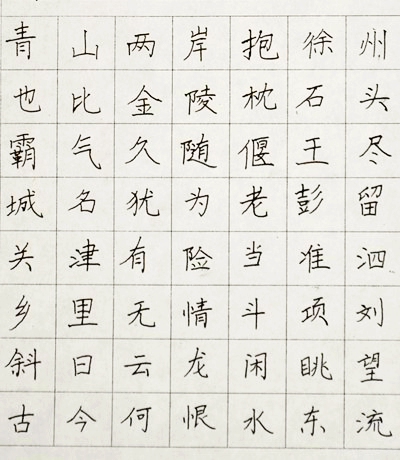 青山两岸抱徐州
也比金陵枕石头
霸气久随偃王尽
城名犹为老彭留
关津有险当准泗
乡里无情斗项刘
斜日云龙闲眺望
古今何恨水东流